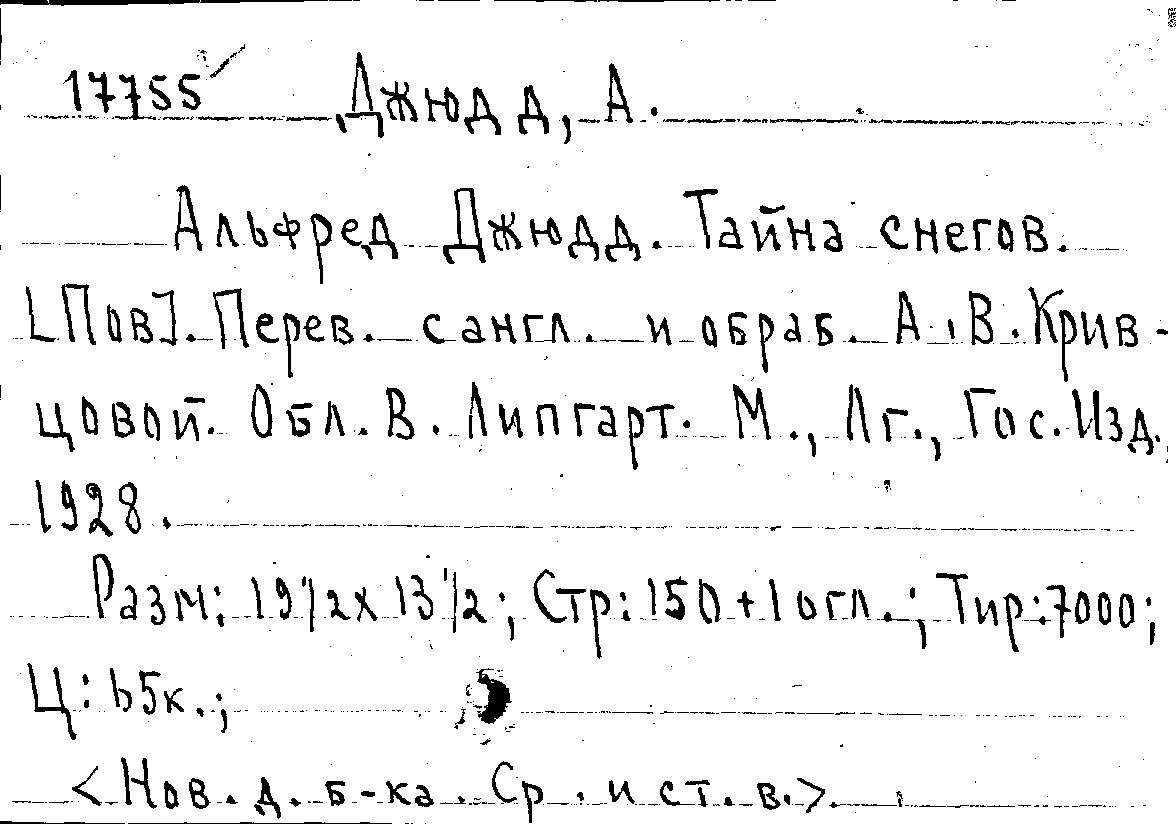 17755 Джюдд, А.
Альфред Джюдд. Тайна снегов.
[Пов]. Перев. с англ. и обраб. А.В. Крив-
цовой. Обл. В. Липгарт. М., Лг., Гос. Изд.,
1928.
Разм: 19 1/2 x 13 1/2; Стр: 150 + 1 огл.; Тир: 7000;
Ц: 65к.;
<Нов. д. б-ка. Ср. и ст. в.>.